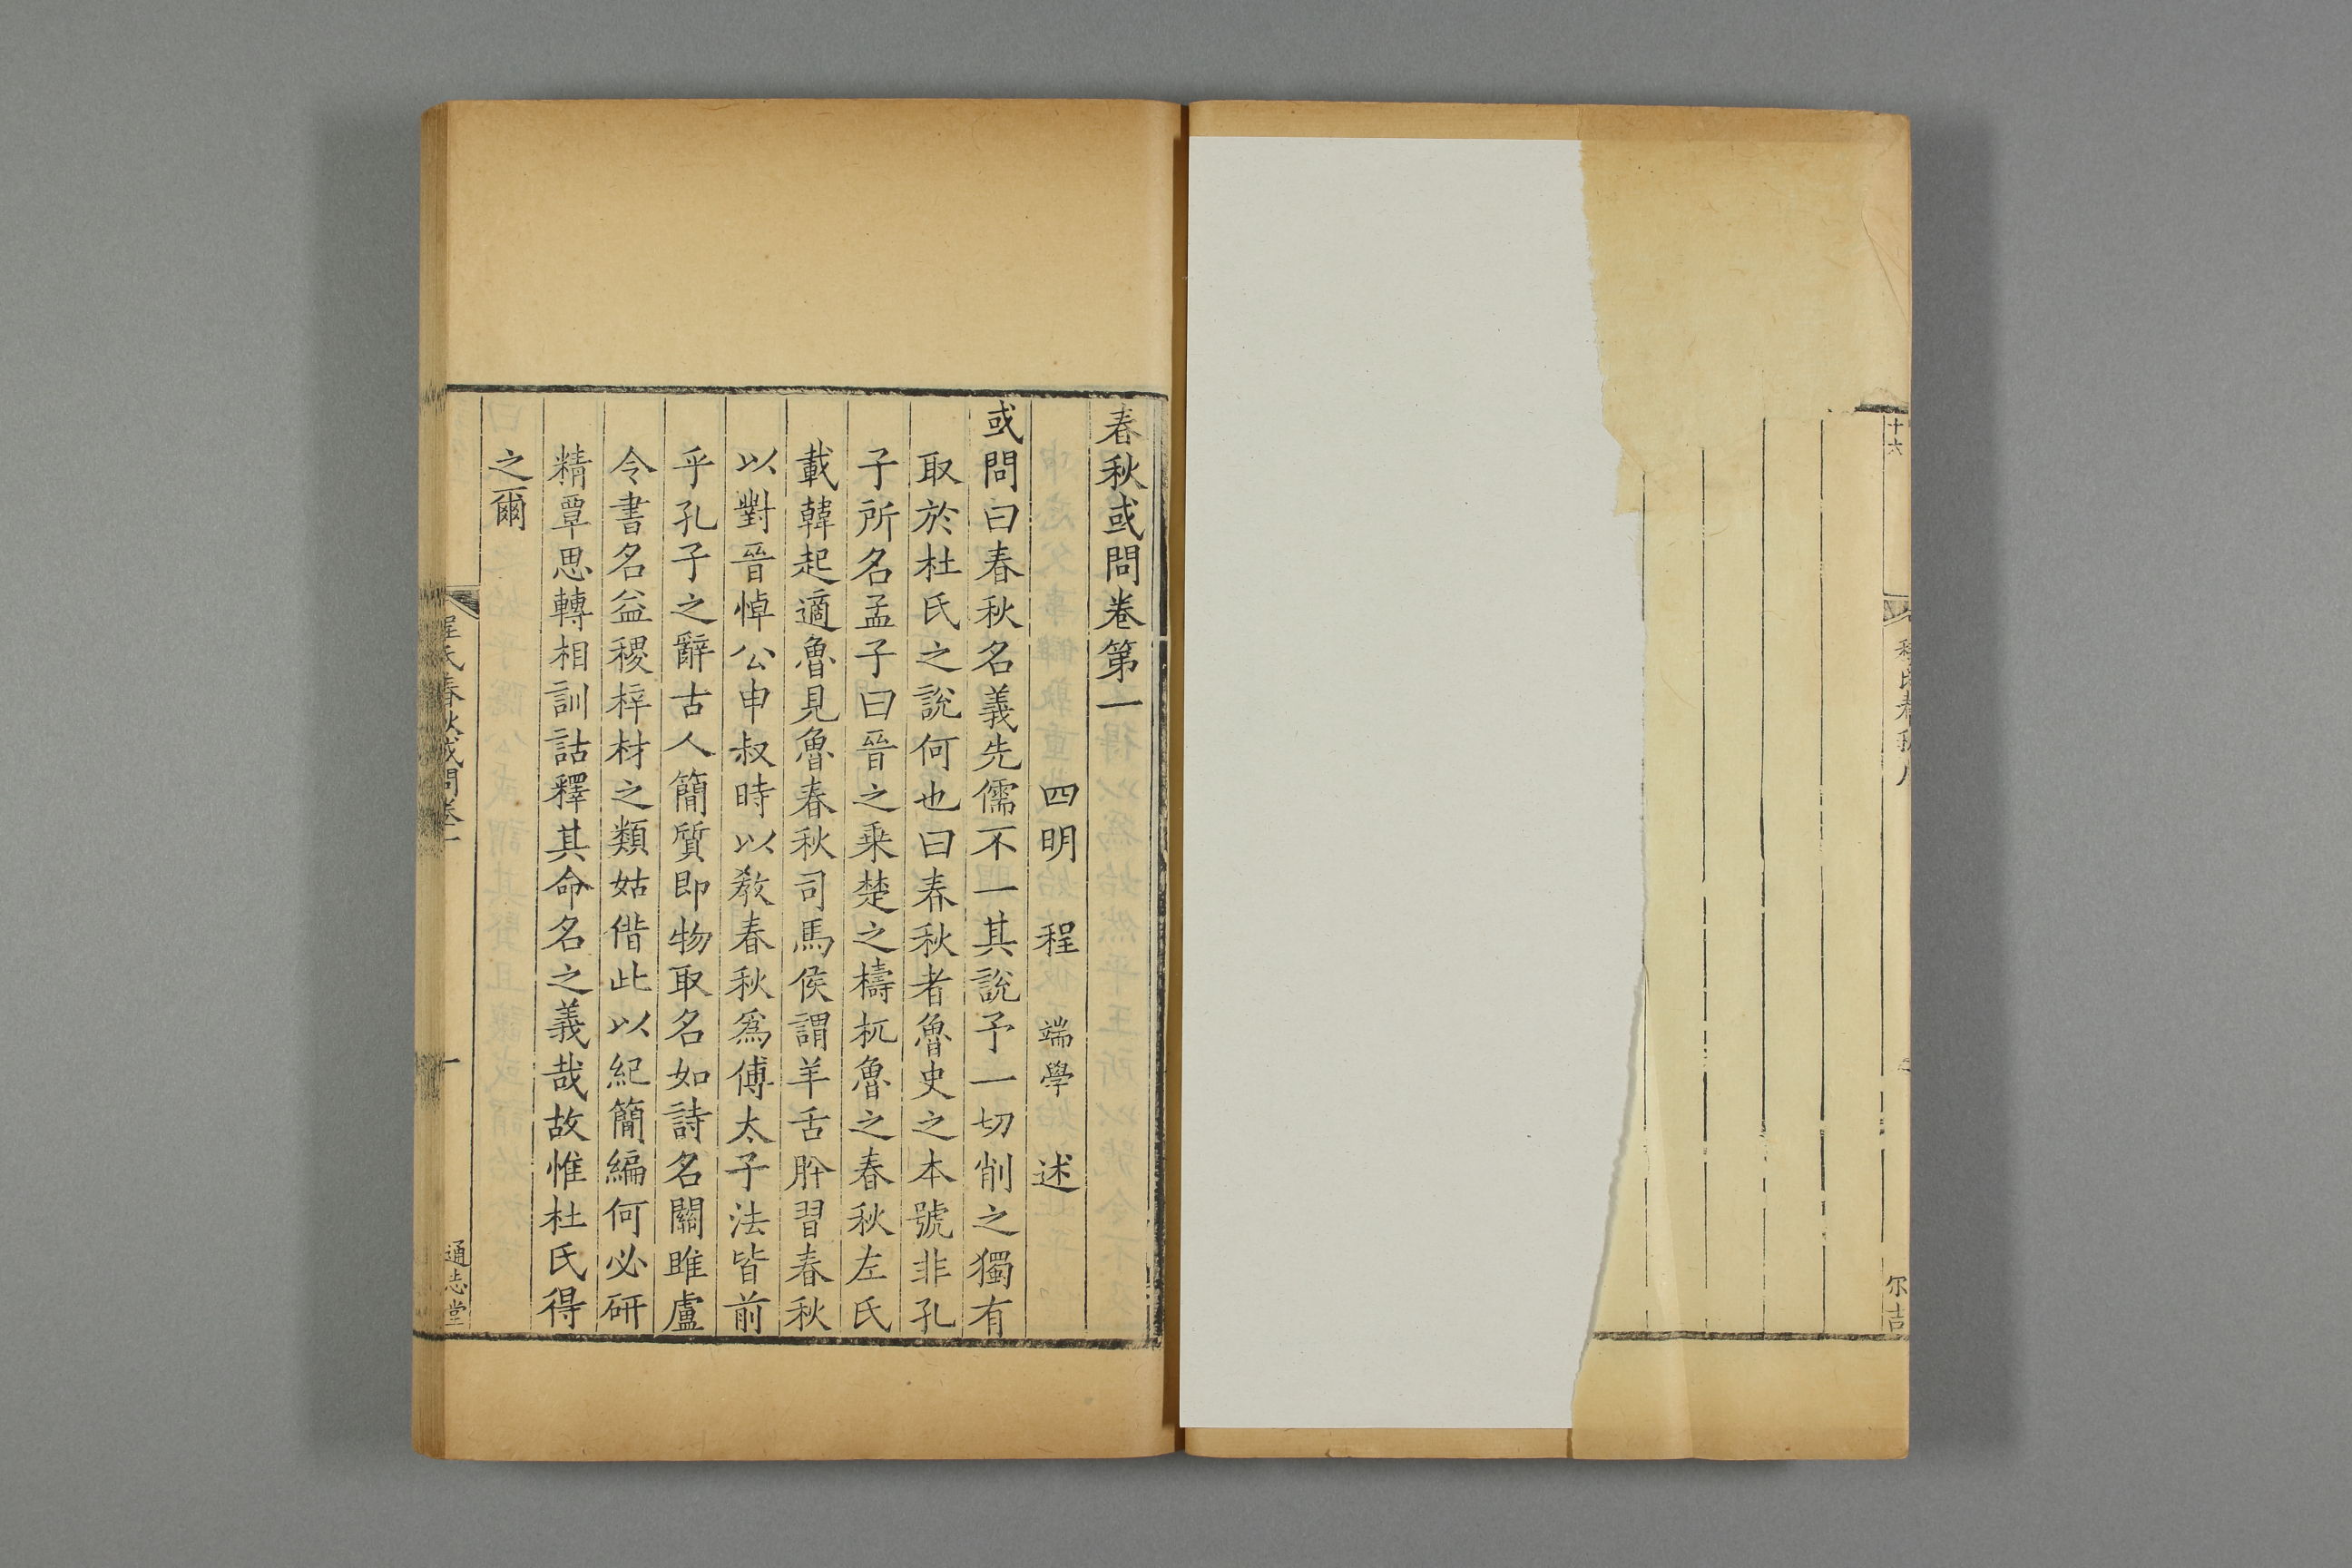 十六
尔吉
春秋或問卷第一
四明程端學述
或問曰春秋名義先儒不一其說予一切削之獨有
取於杜氏之說何也曰春秋者魯史之本號非孔
子所名孟子曰晉之乗楚之檮杌魯之春秋左氏
載韓起適魯見魯春秋司馬侯謂羊舌肸習春秋
以對晉悼公申叔時以敎春秋爲傅太子法皆前
乎孔子之辭古人簡質即物取名如詩名關雎盧
令書名益稷梓材之類姑偕此以紀簡編何必研
精覃思轉相訓詁釋其命名之義哉故惟杜氏得
之爾
程氏春秋或問卷一
一
通志堂